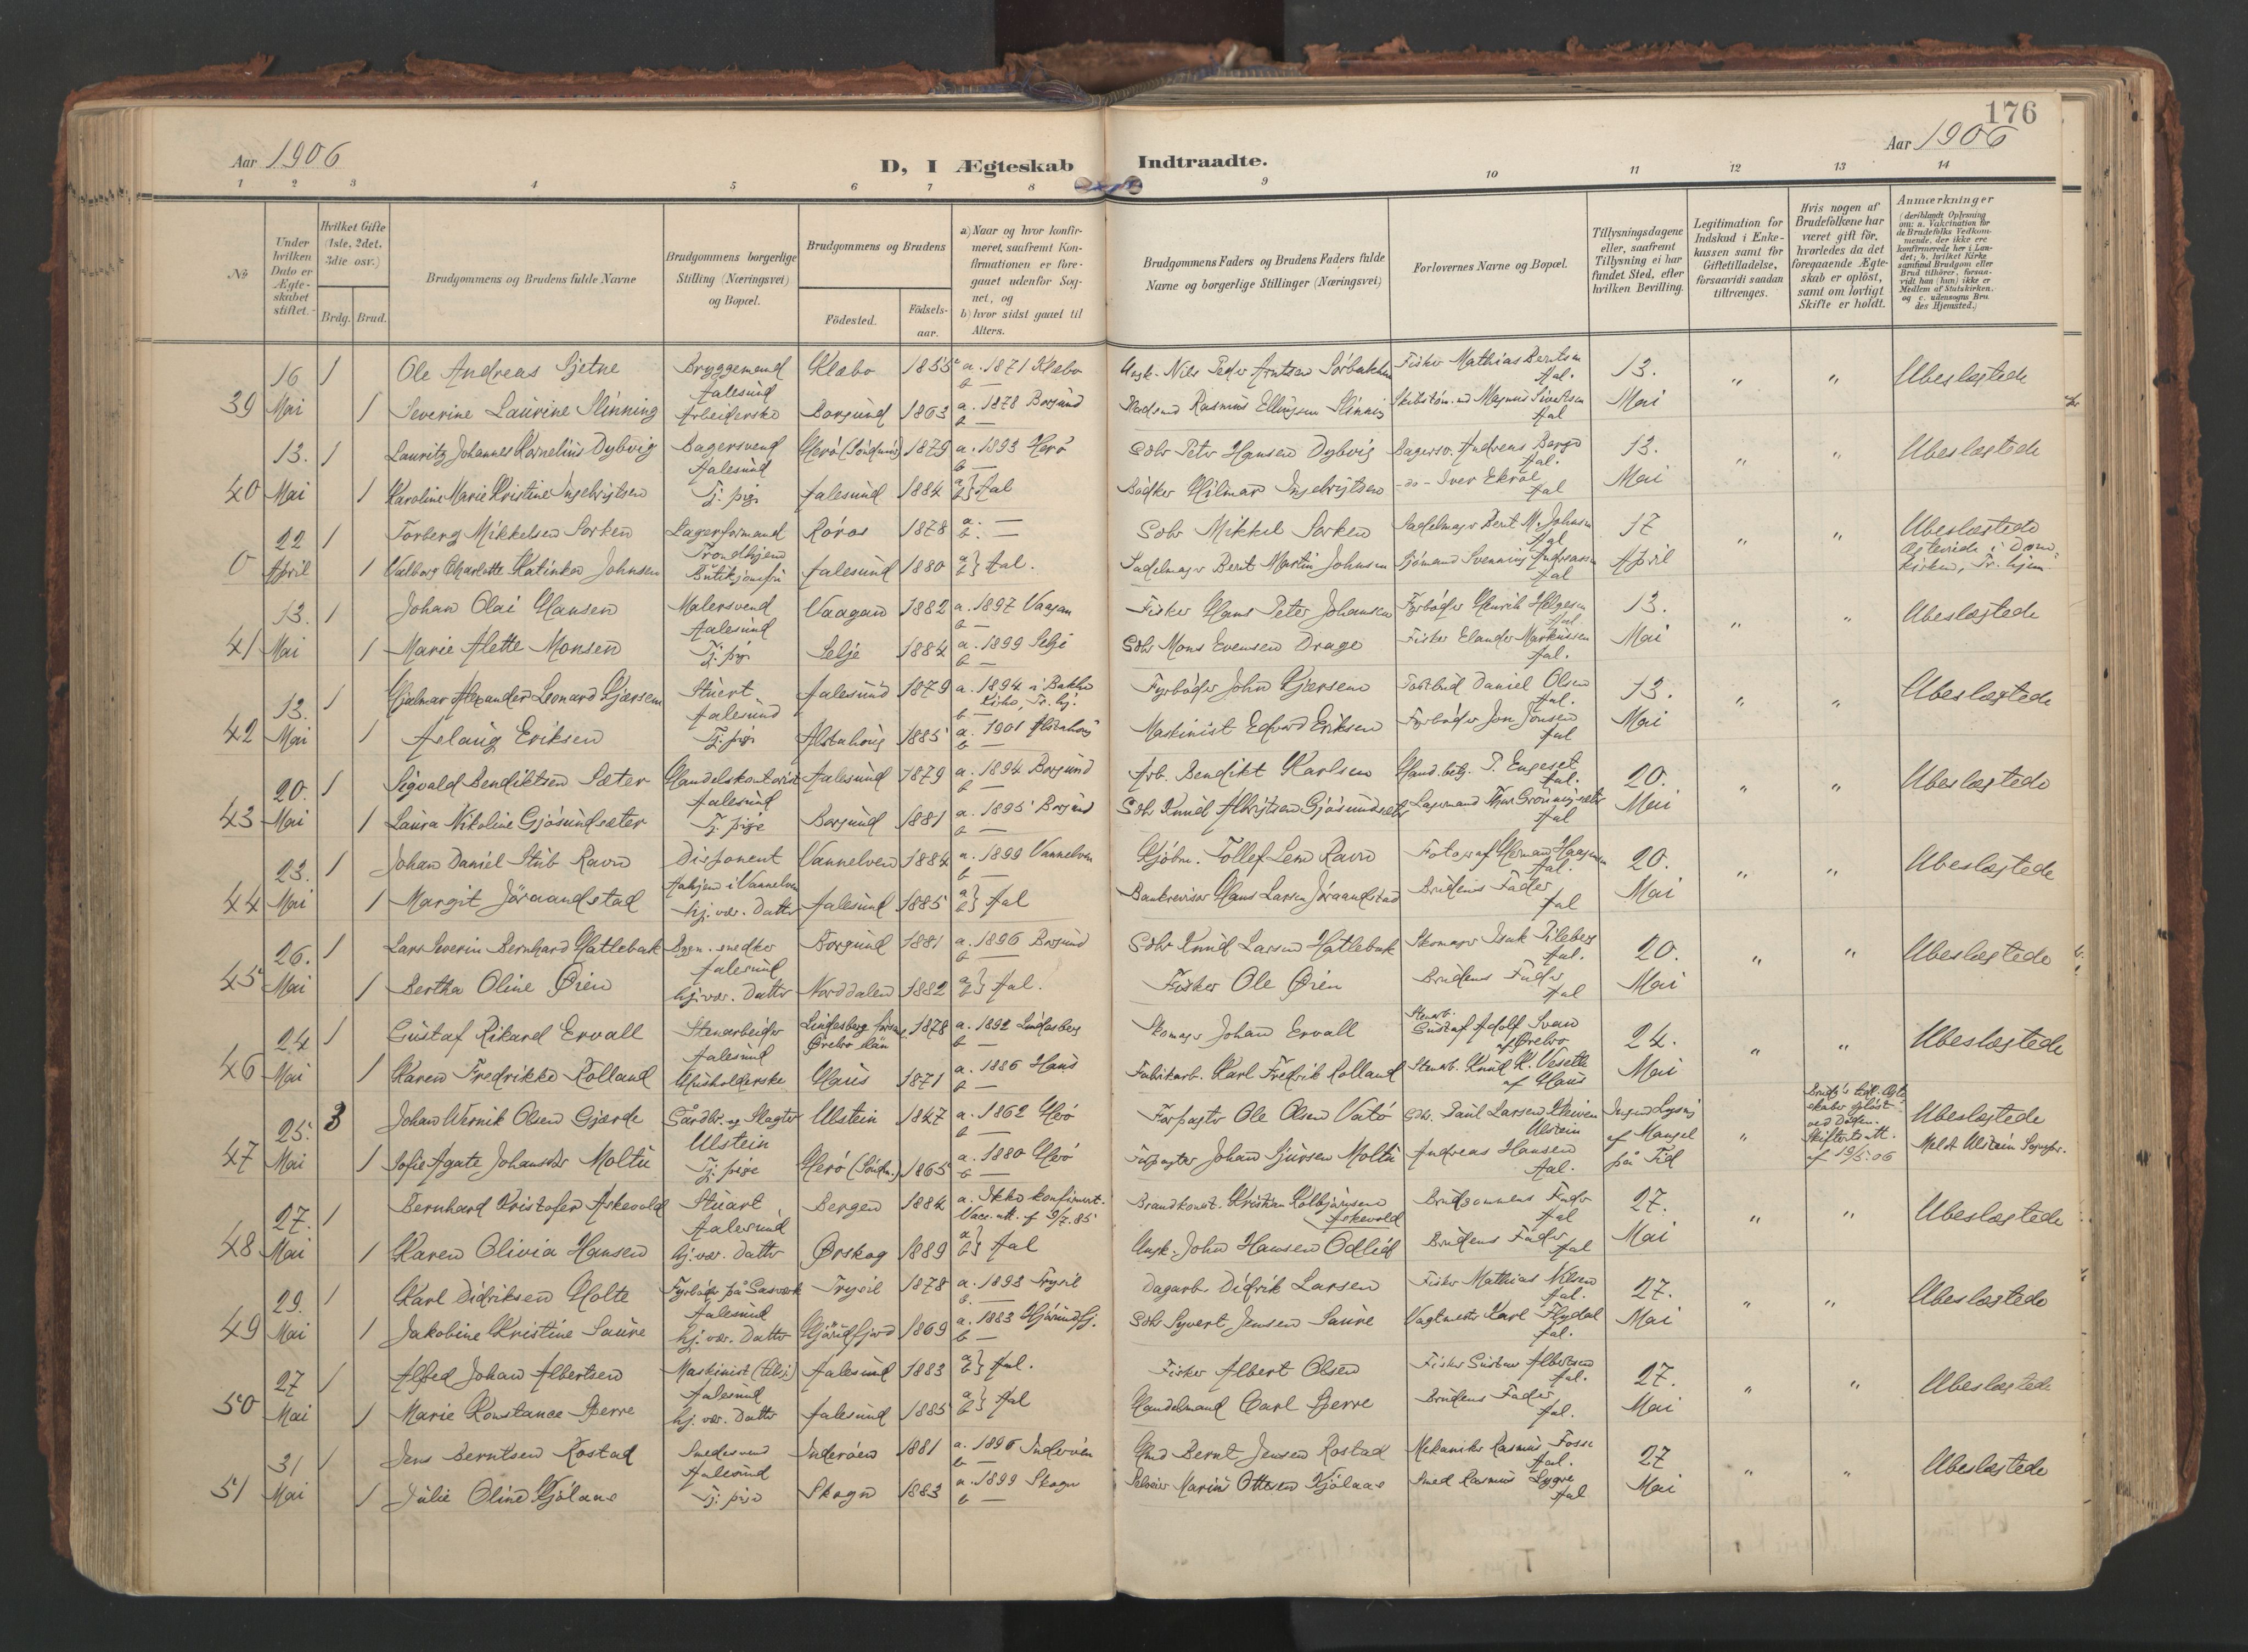 176
Aar 1906
D, I Ægteskab Indtraadte.
Aar 1906
1 2 3 4 5 6 7 8 9 10 11 12 13 14
No
Under hvilken Dato er Ægteskabet stiftet.
Hvilket Gifte (1ste, 2det, 3die osv.)
Brdg. Brud.
Brudgommens og Brudens fulde Navne
Brudgommens borgerlige Stilling (Næringsvei) og Bopæl.
Brudgommens og Brudens
Fødested.
Fødselsaar.
a) Naar og hvor konfirmeret, saafremt Konfirmationen er foregaaet udenfor Sognet, og
b) hvor sidst gaaet til Alters.
Brudgommens Faders og Brudens Faders fulde Navne og borgerlige Stillinger (Næringsvei)
Forlovernes Navne og Bopæl.
Tillysningsdagene eller, saafremt Tillysning ei har fundet Sted, efter hvilken Bevilling.
Legitimation for Indskud i Enkekassen samt for Giftetilladelse, forsaavidt saadan tiltrænges.
Hvis nogen af Brudefolkene har været gift før, hvorledes da det foregaaende Ægteskab er opløst, samt om lovligt Skifte er holdt.
Anmærkninger
(deriblandt Oplysning om: a. Vakcination for de Brudefolks Vedkommende, der ikke ere konfirmerede her i Landet; b. hvilket Kirkesamfund Brudgom eller Brud tilhører, forsaavidt han (hun) ikke er Medlem af Statskirken, og c. udensogns Brudes Hjemsted.)
39 16 Mai 1 Ole Andreas Sjetne Bryggemand Aalesund Klæbo 1855 a. 1871 Klæbo b — Gbsk. Nils Peder Arntsen Sørbakken Fisker Mathias Berntsen Aal. 13. Mai " " Ubeslægtede
1 Severine Laurine Slinning Arbeiderske Borgund 1863 a. 1878 Borgund b — Rasmus Ellingsen Slinning Magnus Sivertsen Aal
40 13. Mai 1 Lauritz Johannes Kornelius Dybvig Bagersvend Aalesund Herø (Søndmør) 1879 a. 1893 Herø b — Gdbr Peter Hansen Dybvig Bagersv. Andreas Berge Aal. 13. Mai " " Ubeslægtede
1 Karoline Marie Kristine Ingebrigtsen Tj. pige Aalesund 1884 a b } Aal Bødker Hilmar Ingebrigtsen - do - Iver Ekrol Aal
0 22 April 1 Torberg Mikkelsen Sorken Lagerformand Trondhjem Røros 1878 a. — b. — Gdbr Mikkel Sorken Sadelmager Bernt M. Johnsen Aal 17 April " " Ubeslægtede
1 Valborg Charlotte Katinka Johnsen Butikjomfru Aalesund 1880 a b } Aal. Sadelmager Bernt Martin Johnsen Sjømand Svenning Andreassen Aal Ægteviede i Domkirken, Tr. hjem
41 13. Mai 1 Johan Olai Hansen Malersvend Aalesund Vaagan 1882 a. 1897 Vaagan b — Fisker Hans Peter Johansen Fyrbøder Henrik Helgesen Aal 13. Mai " " Ubeslægtede
1 Marie Alette Monsen Tj. pige Selje 1884 a. 1899 Selje b — Gdbr Mons Evensen Drage Fisker Elander Markussen Aal.
42 13. Mai 1 Hjalmar Alexander Leonard Gjersem Stuert Aalesund Aalesund 1879 a. 1894 i Bakke Kirke, Tr. hj. b — Fyrbøder John Gjersem Postbud Daniel Olsen Aal. 13. Mai " " Ubeslægtede
1 Aslaug Eriksen Tj. pige Alstahoug 1885 a. 1901 Alstahoug b — Maskinist Edvard Eriksen Fyrbøder Jon Jonsen Aal
43 20. Mai 1 Sigvald Bendiktsen Sæter Handelskontorist Aalesund Aalesund 1879 a. 1894 Borgund b — Arb. Bendikt Karlsen Hand. betj. P. Engeset Aal. 20. Mai " " Ubeslægtede
1 Laura Nikoline Gjøsundsæter Tj. pige Borgund 1881 a. 1895 Borgund b — Gdbr Knud Albrigtsen Gjøsundsæter Lagermand Thor Grønningsæter Aal
44 23. Mai 1 Johan Daniel Stub Ravn Disponent Aahjem i Vannelven Vannelven 1884 a. 1899 Vannelven b — Kjøbm. Tollef Lem Ravn Fotograf Herman Haagensen Aal. 20. Mai " " Ubeslægtede
1 Margit Jøraandstad hj. vær. Datter Aalesund 1885 a b } Aal Bankrevisor Hans Larsen Jøraandstad Brudens Fader Aal
45 26. Mai 1 Lars Severin Bernhard Hatlebak Bygn. snedker Aalesund Borgund 1881 a. 1896 Borgund b — Gdbr Knud Larsen Hatlebak Skomager Isak Pileberg Aal. 20. Mai " " Ubeslægtede
1 Bertha Oline Øien hj. vær. Datter Norddalen 1882 a b } Aal. Fisker Ole Øien Brudens Fader Aal
46 24 Mai 1 Gustaf Rikard Ervall Stenarbeider Aalesund Lindesberg Örebro län 1878 a. 1892 Lindesberg b — Skomager Johan Ervall Stenarb. Gustaf Adolf Svan af Örebro 24. Mai " " Ubeslægtede
1 Karen Fredrikke Rolland Husholderske Haus 1871 a. 1886 Haus b — Fabrikarb. Karl Fredrik Rolland Stenarb. Knud K. Vesetle af Haus
47 25. Mai 3 Johan Wernik Olsen Gjerde Gårdbr. og Slagter Ulstein Ulstein 1847 a. 1862 Herø b — Forpagter Ole Olsen Vatø Gdbr. Paul Larsen Kleiven Ulstein Ingen Lysning af Mangel på Tid " Brudg's tidl. Ægteskaber opløst ved Døden. Skifteretsatt. af 19/5. 06 Ubeslægtede
1 Sofie Agate Johansdtr Moltu Tj. pige Herø (Søndm.) 1865 a. 1880 Herø b — Forpagter Johan Sjursen Moltu Andreas Hansen Aal. Meldt Ulstein Sognepr.
48 27. Mai 1 Bernhard Kristofer Askevold Stuart Aalesund Bergen 1884 a. Ikke konfirmert. Vacc. att. f 9/7. 85 Brandkonst. Kristian Kolbjørnsen Askevold Brudgommens Fader Aal 27. Mai " " Ubeslægtede
1 Karen Olivia Hansen hj. vær. Datter Ørskog 1889 a b } Aal Gbsk. John Hansen Ødlid Brudens Fader Aal
49 29. Mai 1 Karl Didriksen Holte Fyrbøder på Gasværk Aalesund Trysil 1878 a. 1893 Trysil b. — Dagarb. Didrik Larsen Fisker Mathias Nilsen Aal. 27. Mai " " Ubeslægtede
1 Jakobine Kristine Saure hj. vær. Datter Hjørundfjord 1869 a. 1883 Hjørundfj. b — Gdbr Syvert Jensen Saure Vagtmester Karl Flydal Aal.
50 27 Mai 1 Alfred Johan Albertsen Maskinist Aalesund Aalesund 1883 a b } Aal. Fisker Albert Olsen Fisker Gustav Albertsen Aal. 27. Mai " " Ubeslægtede
1 Marie Konstance Sperre hj. vær. Datter Aalesund 1885 a b } Aal Handelmand Carl Sperre Brudens Fader Aal.
51 31 Mai 1 Jens Berntsen Rostad Smedesvend Aalesund Inderøen 1881 a. 1896 Inderøen b — Gmd Bernt Jensen Rostad Mekaniker Rasmus Fosse Aal. 27 Mai " " Ubeslægtede
1 Julie Oline Kjølaas Tj. pige Skogn 1883 a. 1899 Skogn b — Selveier Marius Ottesen Kjølaas Smed Rasmus Lygre Aal